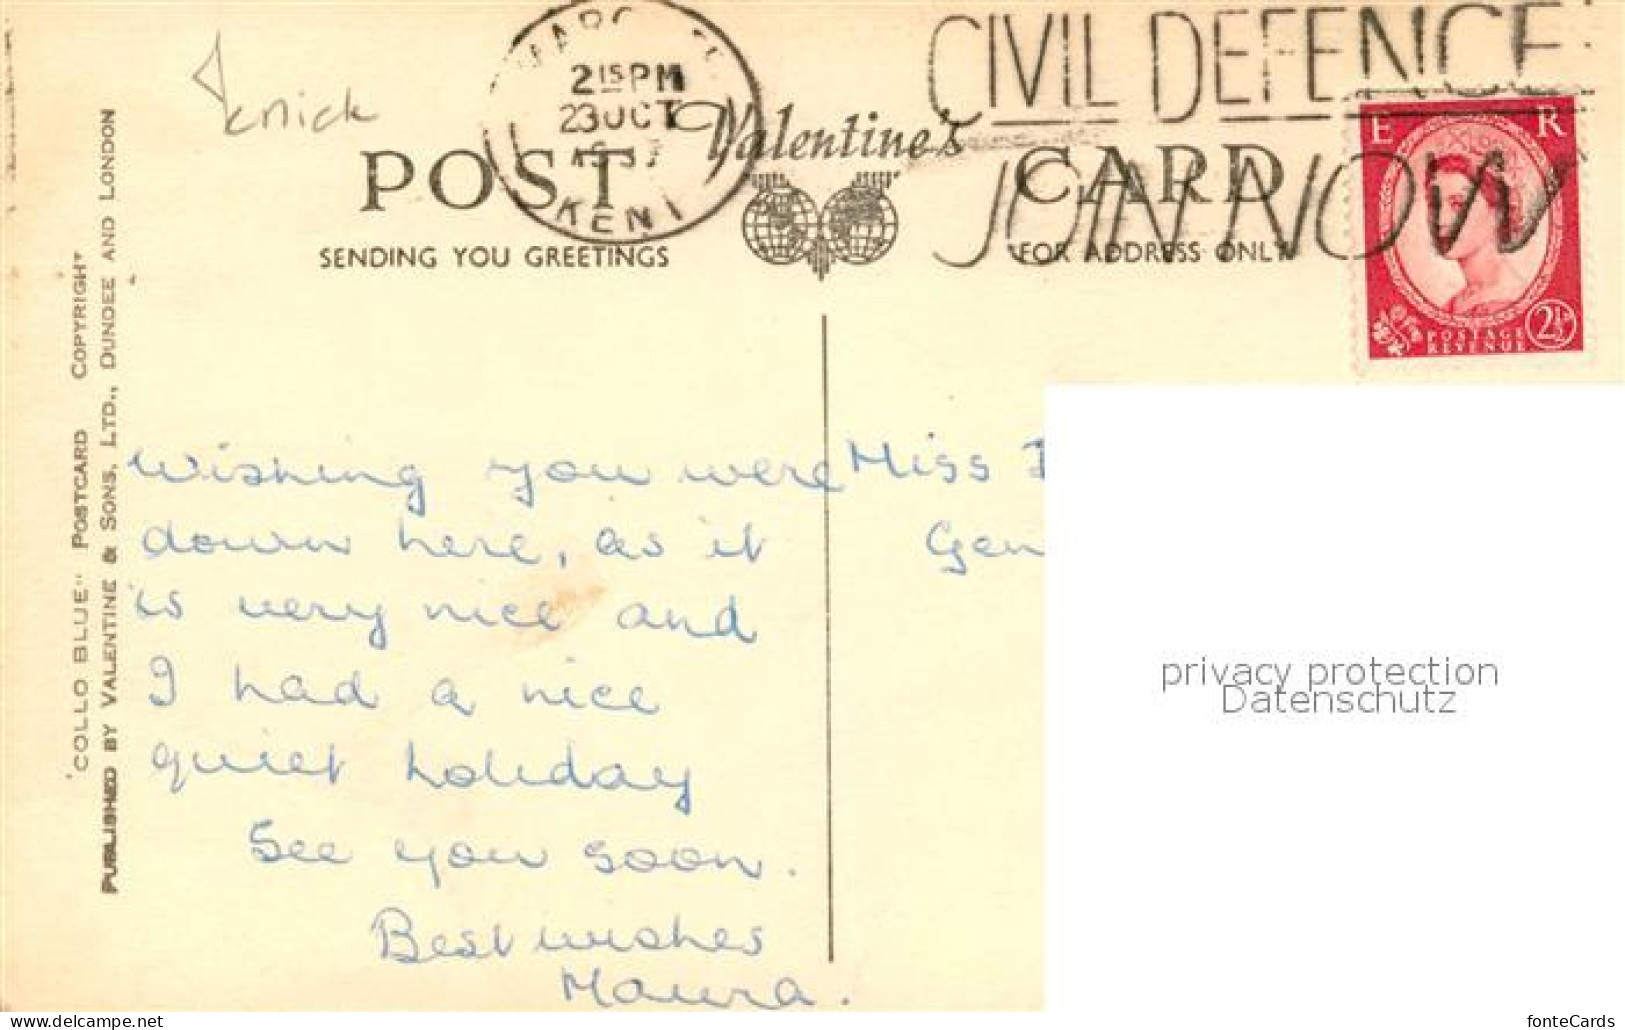 knick
MARGATE
2 15 PM
23 OCT
KENT
CIVIL DEFENCE
JOIN NOW
Valentine's
POST CARD
SENDING YOU GREETINGS
FOR ADDRESS ONLY
E R
POSTAGE
REVENUE
2½
"COLLO BLUE" POSTCARD COPYRIGHT
PUBLISHED BY VALENTINE & SONS, LTD., DUNDEE AND LONDON
Wishing you were
down here, as it
is very nice and
I had a nice
quiet holiday
See you soon.
Best wishes
Maura.
Miss
Gen
privacy protection
Datenschutz
www.delcampe.net
fonteCards